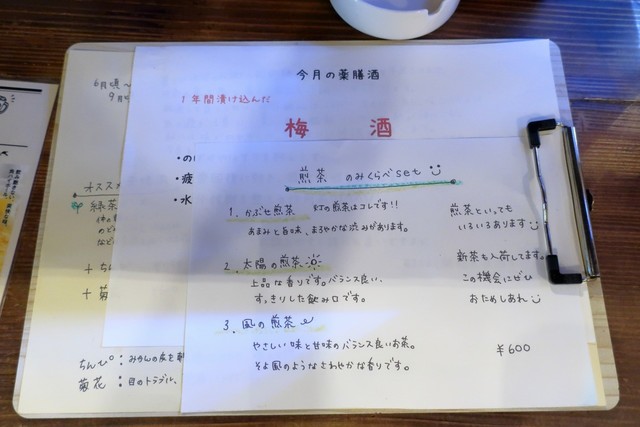 今月の薬膳酒
1年間漬け込んだ
梅 酒
・の
・疲
・水
煎茶 のみくらべset
1. かぶせ煎茶 灯の煎茶はコレです!!
あまみと旨味、まろやかな渋みがあります。
2. 太陽の煎茶
上品な香りです。バランス良い、
すっきりした飲み口です。
3. 風の煎茶
やさしい味と甘味のバランス良いお茶。
そよ風のようなさわやかな香りです。
煎茶といっても
いろいろあります
新茶も入荷してます。
この機会にぜひ
おためしあれ
¥600
6月頃〜
9月
オススメ
緑茶
体の
のど
など
+ ちん
+ 菊
ちんぴ:みかんの皮を乾
菊花:目のトラブル、